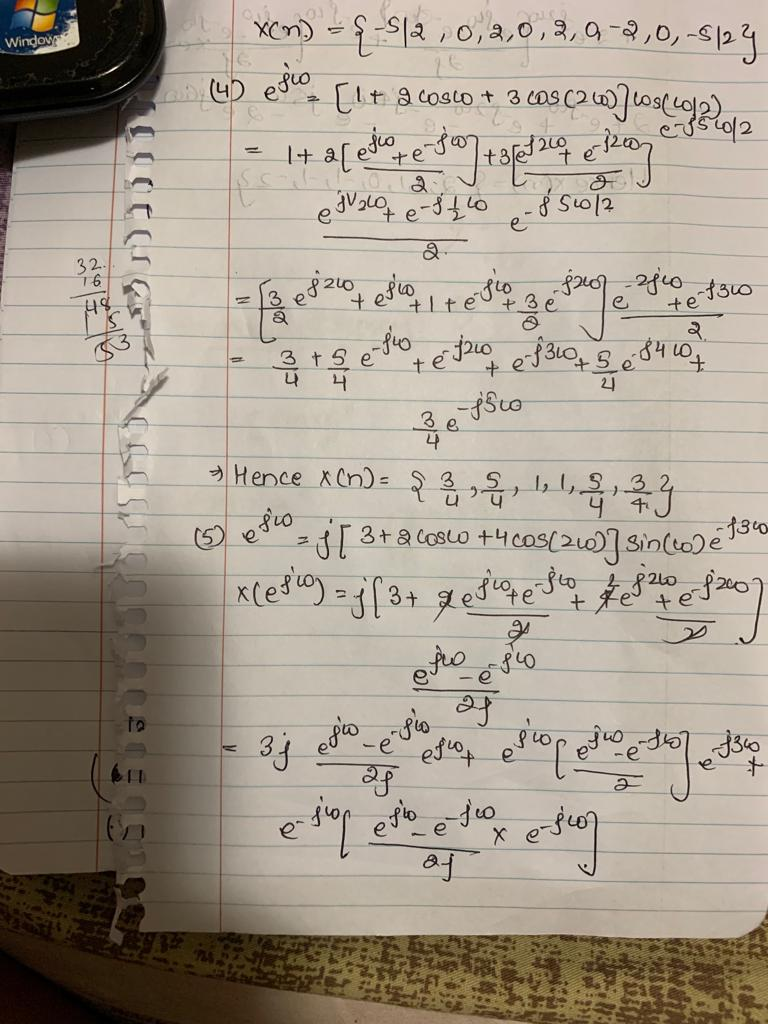 Window
x(n) = {-5/2, 0, 2, 0, 2, 0, -2, 0, -5/2}
(4) e^jω = [1 + 2cosω + 3cos(2ω)]cos(ω/2) e^-j5ω/2
= 1 + 2[(e^jω + e^-jω)/2] + 3[(e^j2ω + e^-j2ω)/2]
(e^j1/2ω + e^-j1/2ω)/2 e^-j5ω/2
= [3/2 e^j2ω + e^jω + 1 + e^-jω + 3/2 e^-j2ω] (e^-2jω + e^-j3ω)/2
= 3/4 + 5/4 e^-jω + e^-j2ω + e^-j3ω + 5/4 e^-j4ω +
3/4 e^-j5ω
⇒ Hence x(n) = {3/4, 5/4, 1, 1, 5/4, 3/4}
(5) e^jω = j[3 + 2cosω + 4cos(2ω)] sin(ω) e^-j3ω
x(e^jω) = j[3 + 2 (e^jω + e^-jω)/2 + 4 (e^j2ω + e^-j2ω)/2]
(e^jω - e^-jω)/2j
= 3j (e^jω - e^-jω)/2j e^jω + e^jω [(e^jω - e^-jω)/2] e^-j3ω +
e^-jω [(e^jω - e^-jω)/2j × e^-jω]
32
16
48
5
53